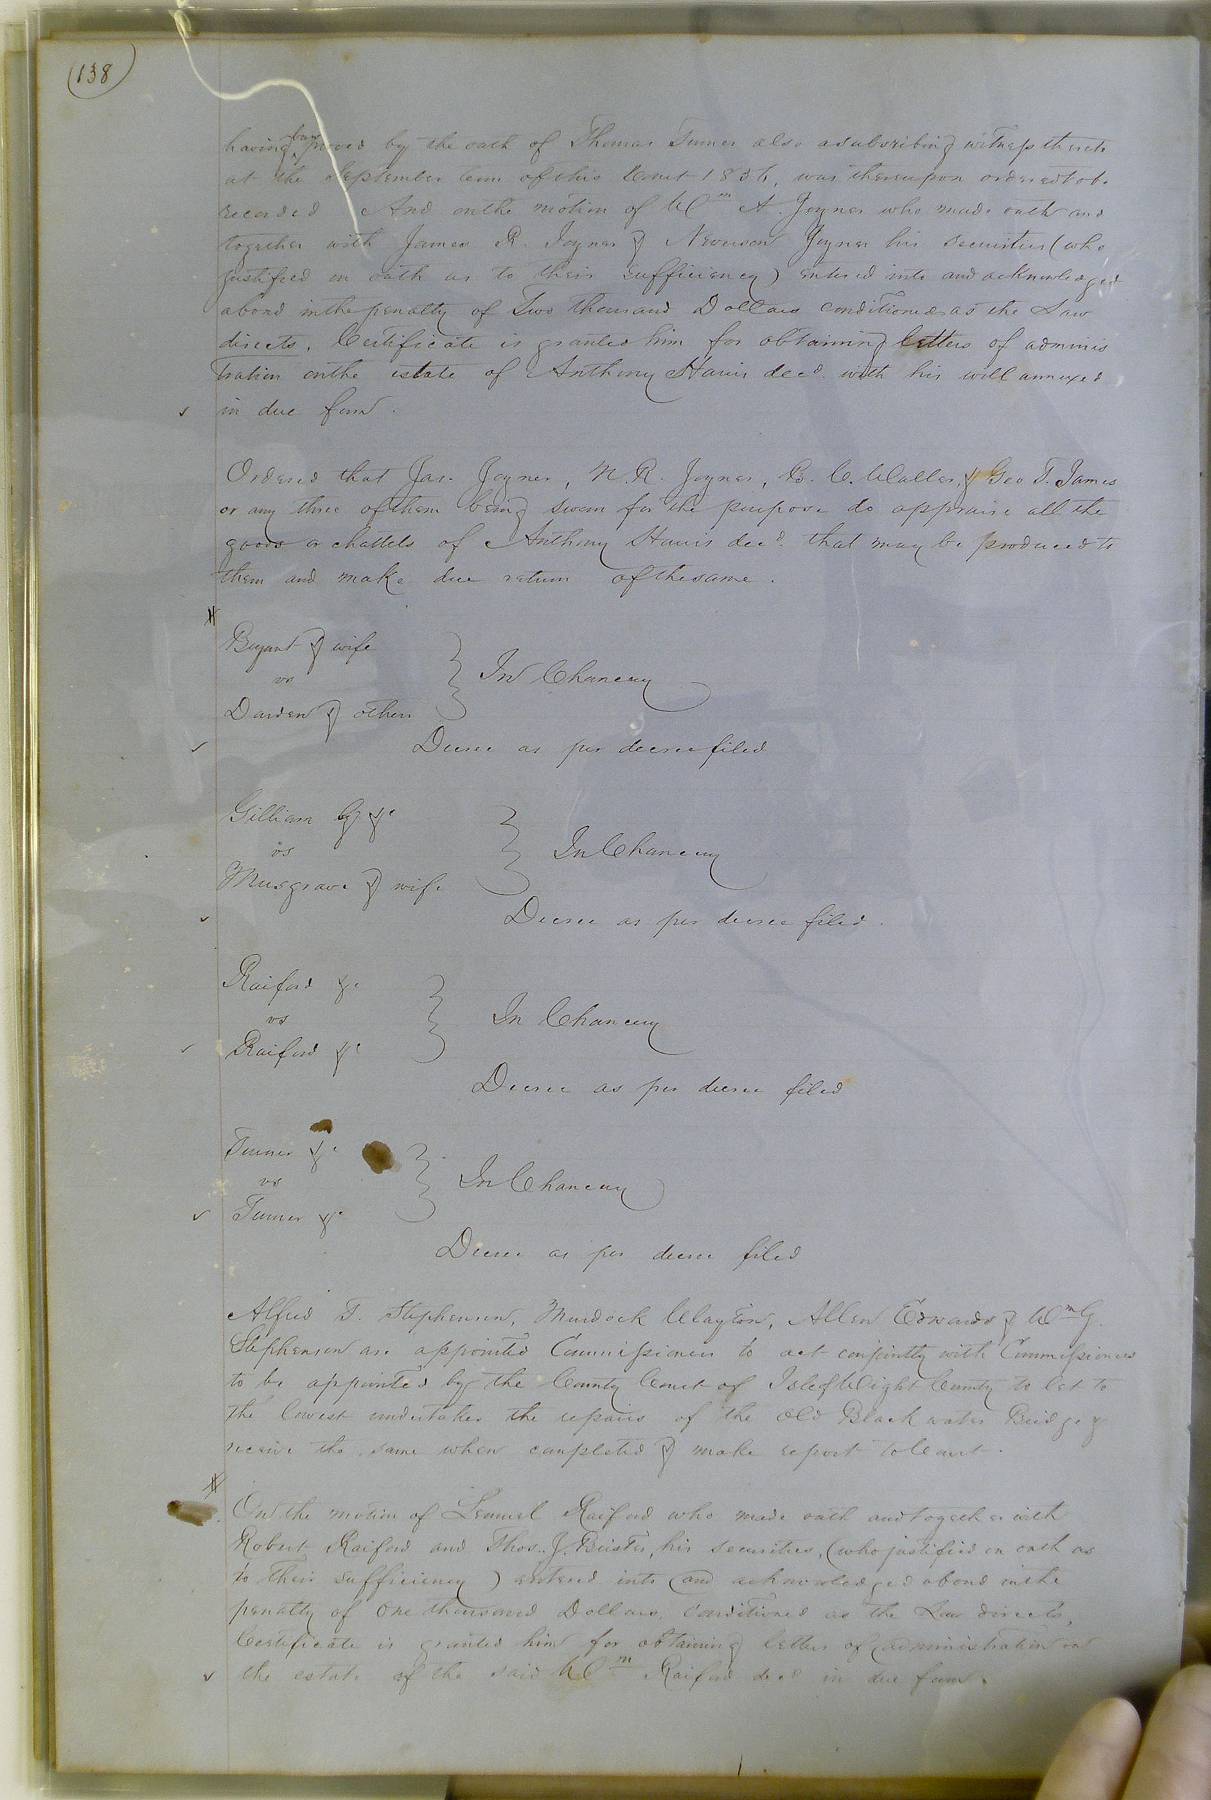 (138)
having been proved by the oath of Thomas Turner also a subscribing witness thereto
at the September term of this Court 1836, was thereupon ordered to be
recorded And on the motion of Wm A. Joyner who made oath and
together with James R. Joyner & Neverson Joyner his securities (who
justified on oath as to their sufficiency) entered into and acknowledged
a bond in the penalty of Two thousand Dollars conditioned as the Law
directs, Certificate is granted him for obtaining letters of adminis
tration on the estate of Anthony Harris decd. with his will annexed
in due form.
Ordered that Jas. Joyner, N. R. Joyner, B. C. Waller, & Geo T. James
or any three of them being sworn for the purpose do appraise all the
goods or chattels of Anthony Harris decd. that may be produced to
them and make due return of the same.
Bryant & wife
vs
In Chancery
Darden & others
Decree as per decree filed
Gilliam &c
vs
In Chancery
Musgrave & wife
Decree as per decree filed.
Raiford &c
vs
In Chancery
Raiford &c
Decree as per decree filed
Turner &c
vs
In Chancery
Turner &c
Decree as per decree filed
Alfred T. Stephenson, Murdock Clayton, Allen Edwards & Wm G.
Stephenson are appointed Commissioners to act conjointly with Commissioners
to be appointed by the County Court of Isle of Wight County to let to
the lowest undertaker the repairs of the Old Black water Bridge &
receive the same when completed & make report to Court.
On the motion of Lemuel Raiford who made oath and together with
Robert Raiford and Thos. J. his securities, (who justified on oath as
to their sufficiency) entered into and acknowledged a bond in the
penalty of One thousand Dollars, conditioned as the Law directs,
Certificate is granted him for obtaining letters of administration on
the estate of the said Wm Raiford decd in due form.